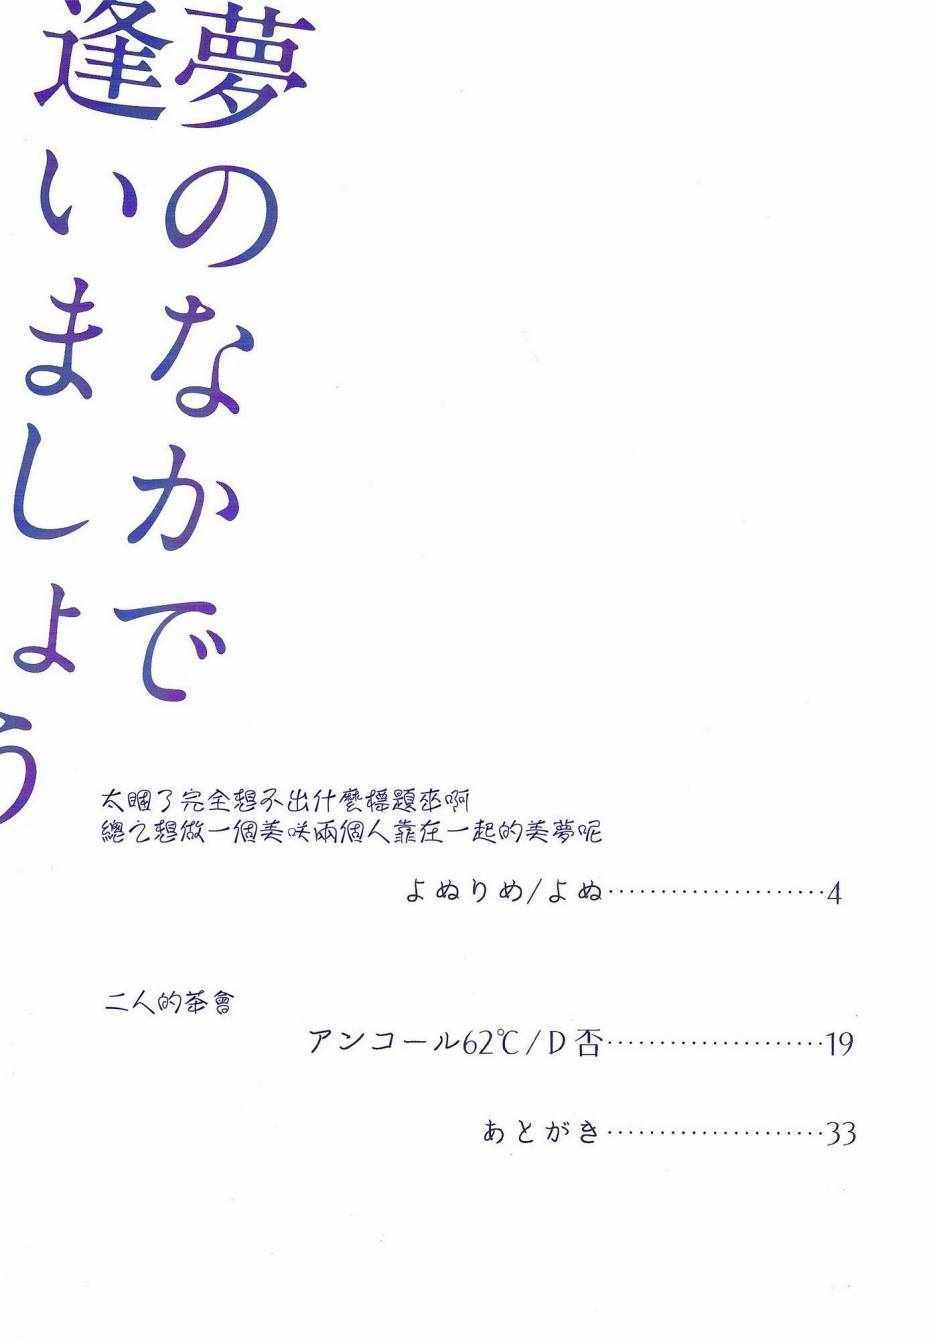 夢のなかで
逢いましょう
太睏了完全想不出什麼標題來啊
總之想做一個美咲兩個人靠在一起的美夢呢
よぬりめ/よぬ·····················4
二人的茶會
アンコール62℃/D否·····················19
あとがき·····················33